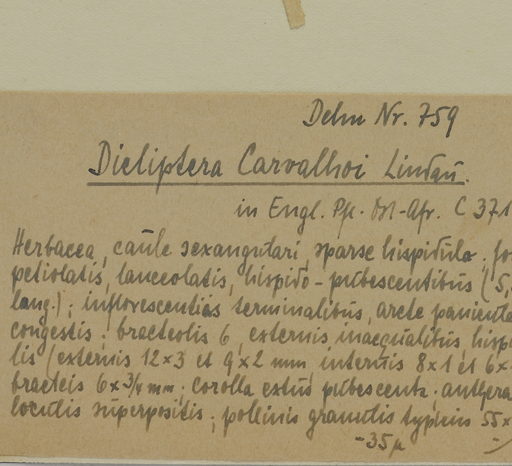 Dehn Nr. 759
Dicliptera Carvalhoi Lindau.
in Engl. Pfl. Ost-Afr. C 371
Herbacea, caule sexangulari, sparse hispidula. fo
petiolatis, lanceolatis, hispido-pubescentibus (5,
lang.); inflorescentiis terminalibus, arcte panicula
congestis; bracteolis 6, externis inaequalibus, hispi
lis (externis 12×3 et 9×2 mm, internis 8×1 et 6×
bracteis 6×3/4 mm. corolla extus pubescente. anthera
loculis superpositis; pollinis granulis typicis 55×
-35µ